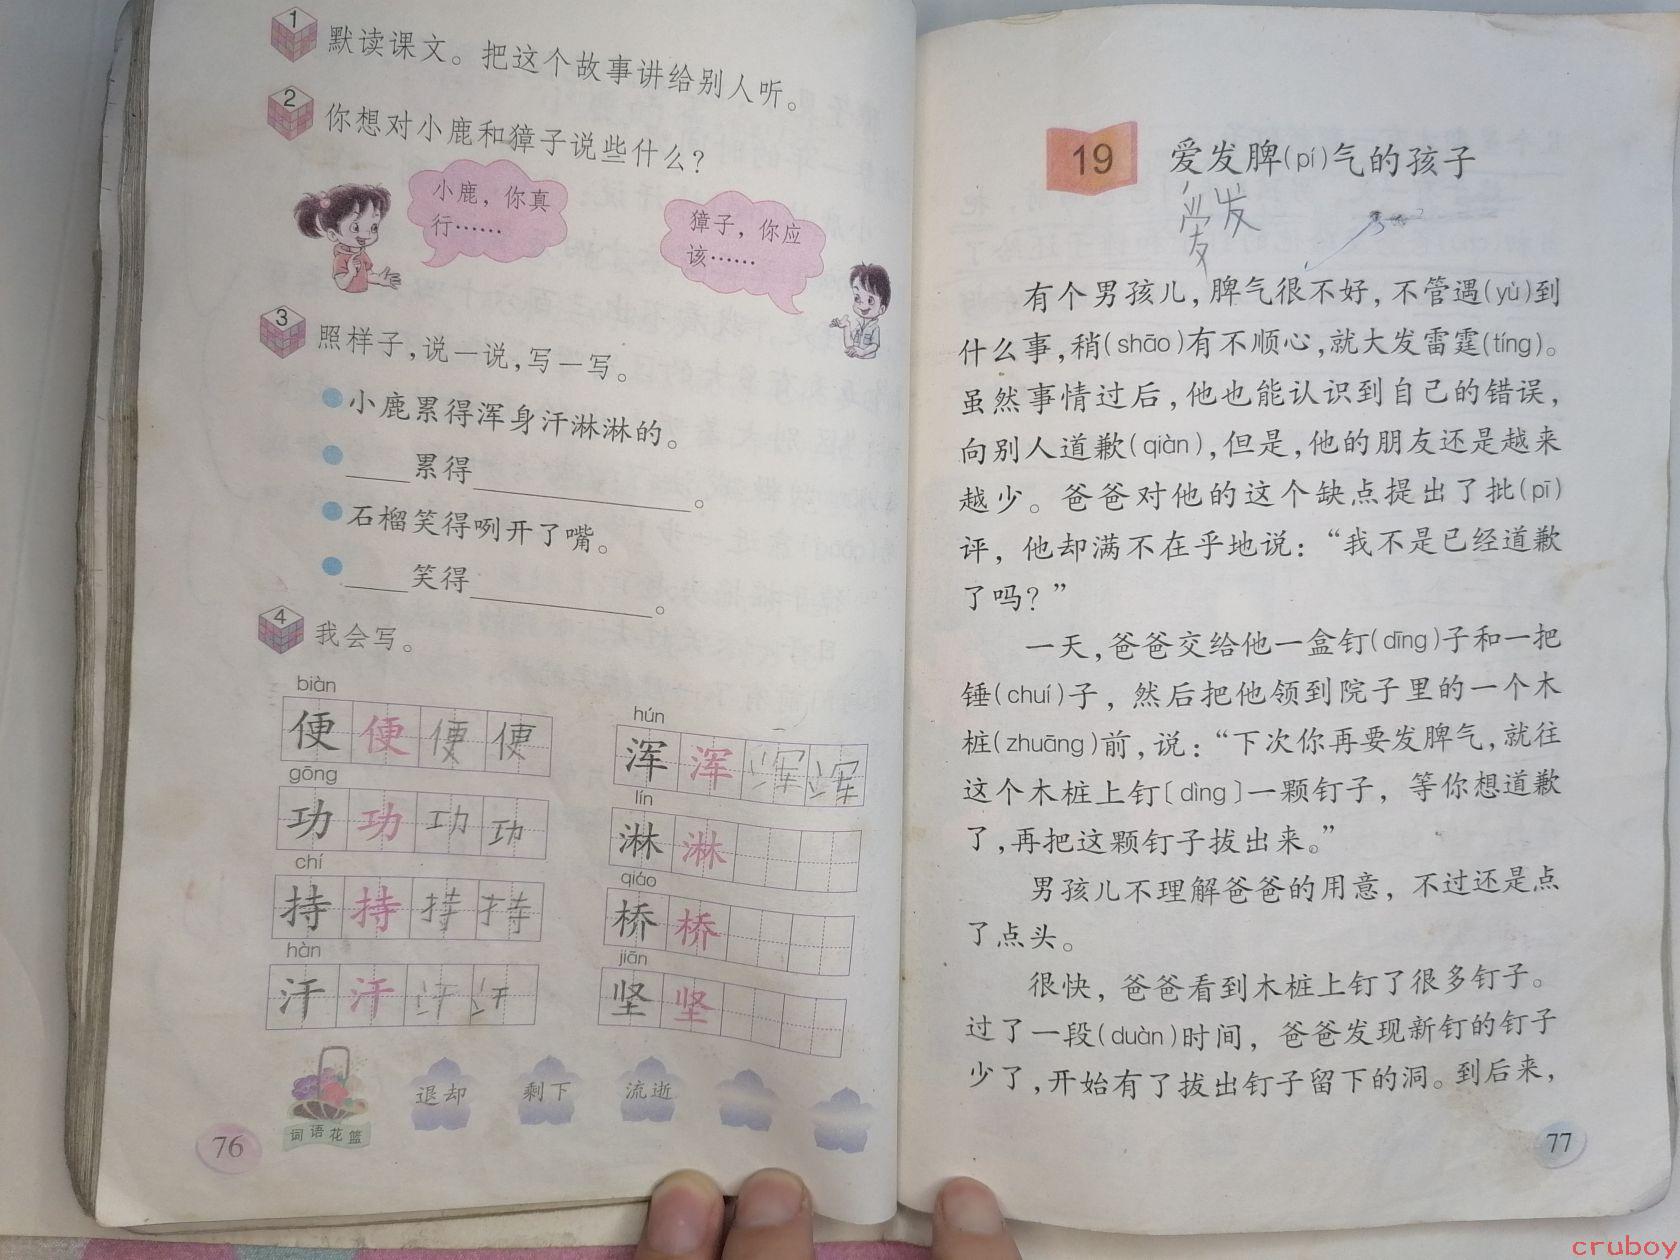 1 默读课文。把这个故事讲给别人听。
2 你想对小鹿和獐子说些什么?
小鹿，你真
行……
獐子，你应
该……
3 照样子，说一说，写一写。
小鹿累得浑身汗淋淋的。
____累得____________。
石榴笑得咧开了嘴。
____笑得____________。
4 我会写。
biàn
便 便 便 便
gōng
功 功 功 功
chí
持 持 持 持
hàn
汗 汗 汗 汗
hún
浑 浑 浑 浑
lín
淋 淋
qiáo
桥 桥
jiān
坚 坚
词语花篮
退却 剩下 流逝
76
19 爱发脾(pí)气的孩子
爱发
有个男孩儿，脾气很不好，不管遇(yù)到
什么事，稍(shāo)有不顺心，就大发雷霆(tíng)。
虽然事情过后，他也能认识到自己的错误，
向别人道歉(qiàn)，但是，他的朋友还是越来
越少。爸爸对他的这个缺点提出了批(pī)
评，他却满不在乎地说：“我不是已经道歉
了吗？”
一天，爸爸交给他一盒钉(dīng)子和一把
锤(chuí)子，然后把他领到院子里的一个木
桩(zhuāng)前，说：“下次你再要发脾气，就往
这个木桩上钉〔dìng〕一颗钉子，等你想道歉
了，再把这颗钉子拔出来。”
男孩儿不理解爸爸的用意，不过还是点
了点头。
很快，爸爸看到木桩上钉了很多钉子。
过了一段(duàn)时间，爸爸发现新钉的钉子
少了，开始有了拔出钉子留下的洞。到后来，
77
cruboy